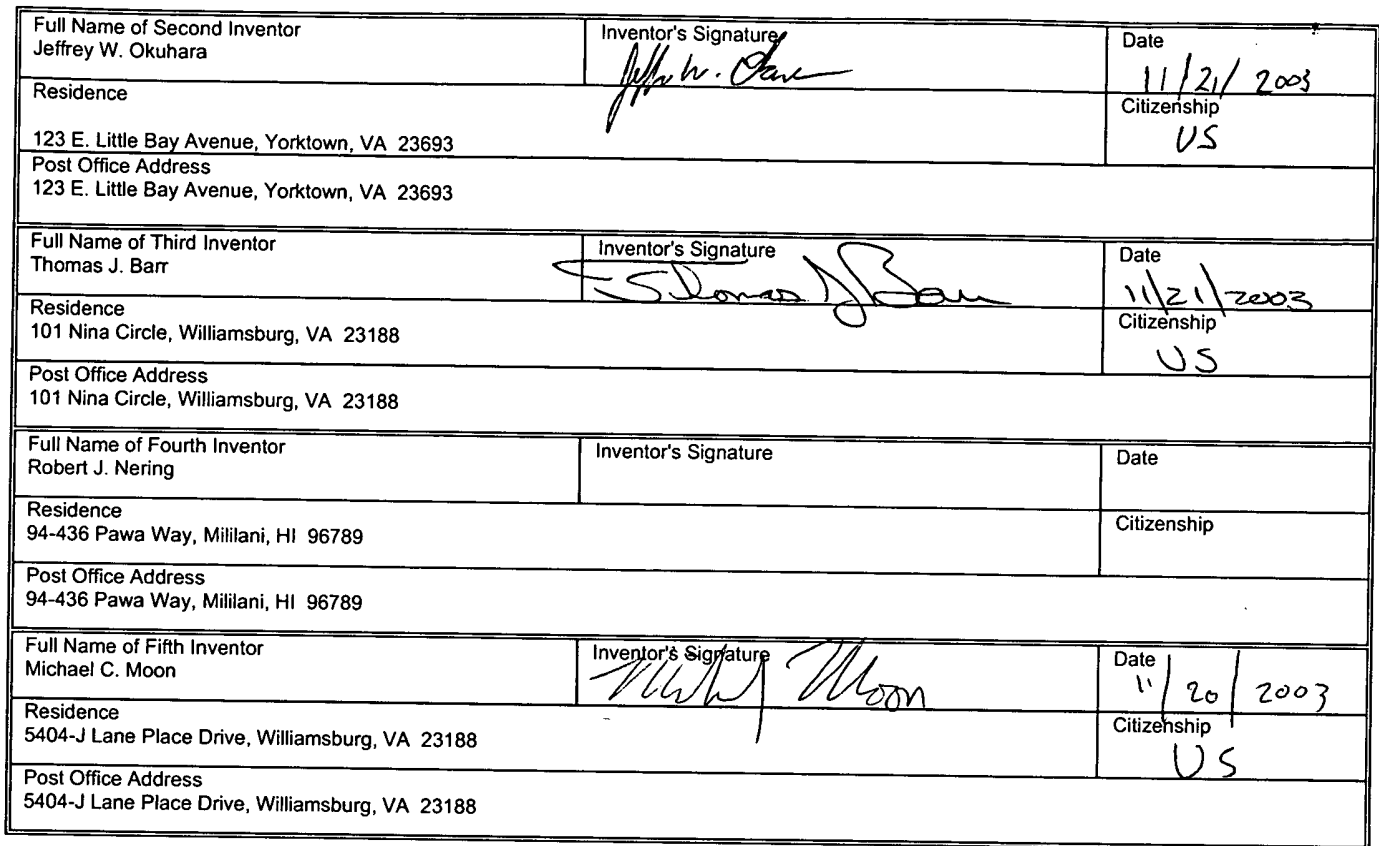 Full Name of Second Inventor
Jeffrey W. Okuhara
Inventor's Signature
Date
11/21/2003
Residence
123 E. Little Bay Avenue, Yorktown, VA 23693
Citizenship
US
Post Office Address
123 E. Little Bay Avenue, Yorktown, VA 23693
Full Name of Third Inventor
Thomas J. Barr
Inventor's Signature
Thomas J Barr
Date
11\21\2003
Residence
101 Nina Circle, Williamsburg, VA 23188
Citizenship
US
Post Office Address
101 Nina Circle, Williamsburg, VA 23188
Full Name of Fourth Inventor
Robert J. Nering
Inventor's Signature
Date
Residence
94-436 Pawa Way, Mililani, HI 96789
Citizenship
Post Office Address
94-436 Pawa Way, Mililani, HI 96789
Full Name of Fifth Inventor
Michael C. Moon
Inventor's Signature
Moon
Date
11/20/2003
Residence
5404-J Lane Place Drive, Williamsburg, VA 23188
Citizenship
US
Post Office Address
5404-J Lane Place Drive, Williamsburg, VA 23188